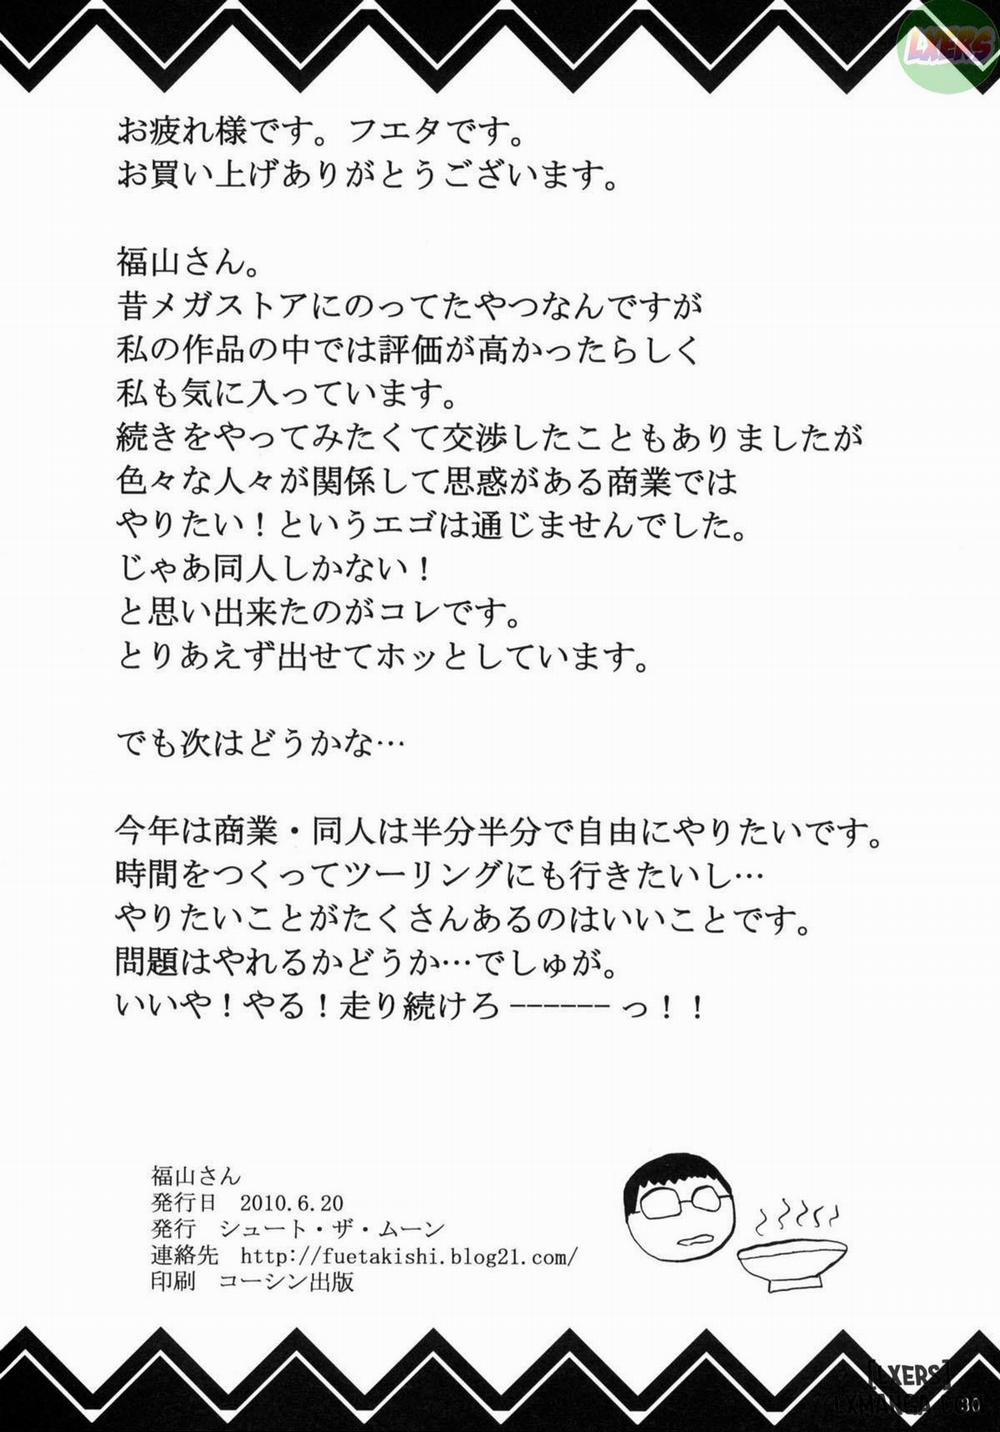 LXERS
お疲れ様です。フエタです。
お買い上げありがとうございます。
福山さん。
昔メガストアにのってたやつなんですが
私の作品の中では評価が高かったらしく
私も気に入っています。
続きをやってみたくて交渉したこともありましたが
色々な人々が関係して思惑がある商業では
やりたい！というエゴは通じませんでした。
じゃあ同人しかない！
と思い出来たのがコレです。
とりあえず出せてホッとしています。
でも次はどうかな…
今年は商業・同人は半分半分で自由にやりたいです。
時間をつくってツーリングにも行きたいし…
やりたいことがたくさんあるのはいいことです。
問題はやれるかどうか…でしゅが。
いいや！やる！走り続けろ------っ！！
福山さん
発行日　2010.6.20
発行　シュート・ザ・ムーン
連絡先　http://fuetakishi.blog21.com/
印刷　コーシン出版
[LXERS]
LXMANGA.COM
30